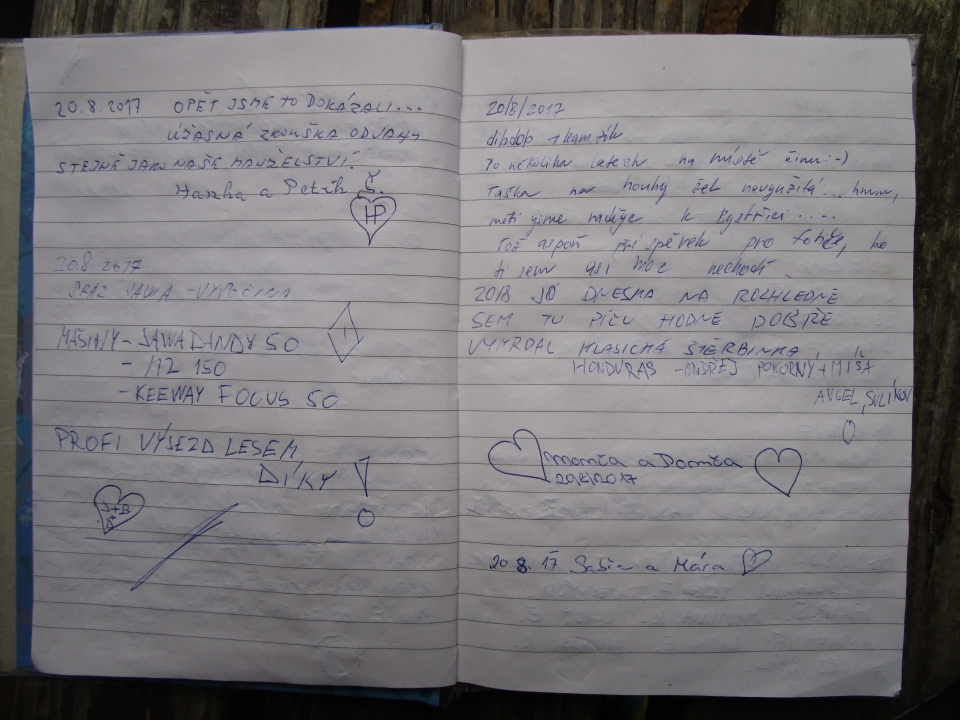 20.8.2017 OPĚT JSME TO DOKÁZALI...
ÚŽASNÁ ZKOUŠKA ODVAHY
STEJNĚ JAKO NAŠE MANŽELSTVÍ.
Hanka a Petr Č.
HP
20.8.2017
SRAZ JAWA
MAŠINY - JAWA DANDY 50
- MZ 150
- KEEWAY FOCUS 50
PROFI VÝJEZD LESEM
DÍKY !
20/8/2017
dibdob + kamzík
Po několika letech na místě činu :-)
Taška na houby žel nevyužitá... hmm,
měli jsme naděje k Bystřici....
Tož aspoň příspěvek pro tohle, bo
ti sem asi moc nechodí.
2018 JÓ DNESKA NA ROZHLEDNĚ
SEM TU PÍČU HODNĚ DOBŘE
VYMRDAL KLASICKÁ ŠTĚRBINKA,
HONDURAS - ONDŘEJ POKORNÝ + MÍŠA
Monča a Domča
20/8/2017
20.8.17 Saša a Mára